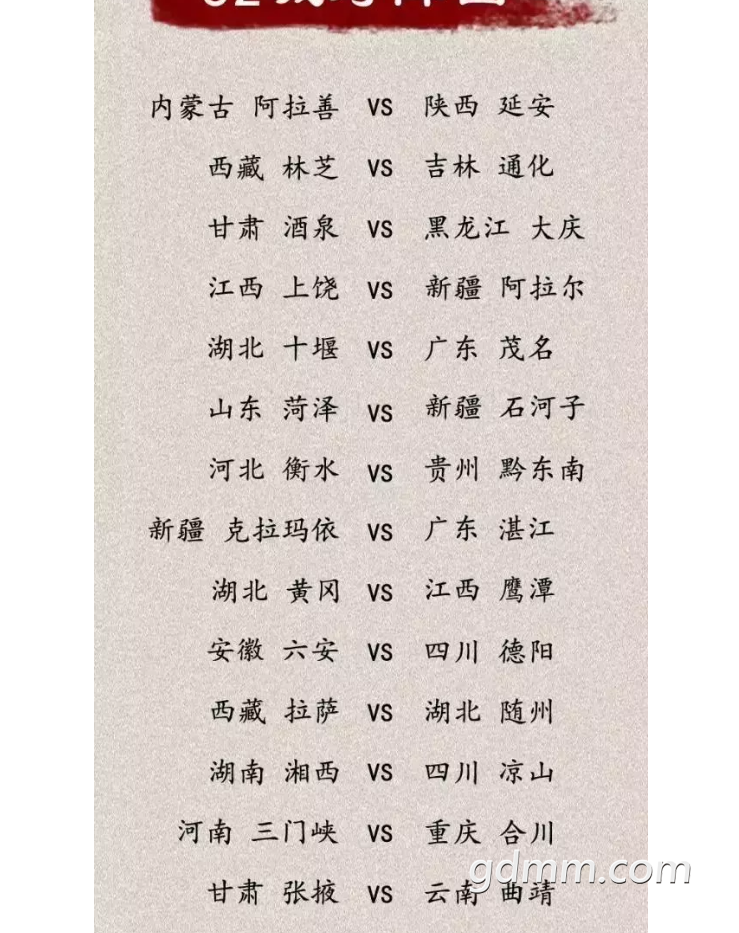 内蒙古 阿拉善 VS 陕西 延安
西藏 林芝 VS 吉林 通化
甘肃 酒泉 VS 黑龙江 大庆
江西 上饶 VS 新疆 阿拉尔
湖北 十堰 VS 广东 茂名
山东 菏泽 VS 新疆 石河子
河北 衡水 VS 贵州 黔东南
新疆 克拉玛依 VS 广东 湛江
湖北 黄冈 VS 江西 鹰潭
安徽 六安 VS 四川 德阳
西藏 拉萨 VS 湖北 随州
湖南 湘西 VS 四川 凉山
河南 三门峡 VS 重庆 合川
甘肃 张掖 VS 云南 曲靖
gdmm.com